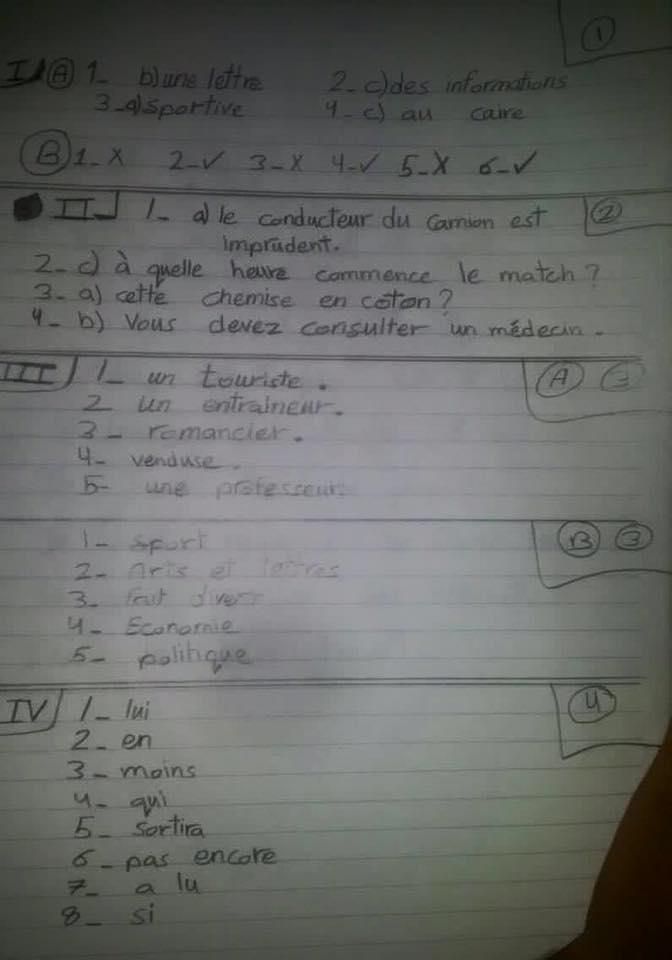 1
I A 1- b) une lettre 2- c) des informations
3- a) sportive 4- c) au caire
B 1- X 2- ✓ 3- X 4- ✓ 5- X 6- ✓
II 1- a) le conducteur du camion est 2
imprudent.
2- c) à quelle heure commence le match ?
3- a) cette chemise en coton ?
4- b) Vous devez consulter un médecin.
III 1- un touriste. A 3
2 un entraineur.
3- romancier.
4- venduse.
5- une professeur.
1- sport B 3
2- Arts et lettres
3- fait divers
4- Economie
5- politique
IV 1- lui 4
2- en
3- moins
4- qui
5- sortira
6- pas encore
7- a lu
8- si